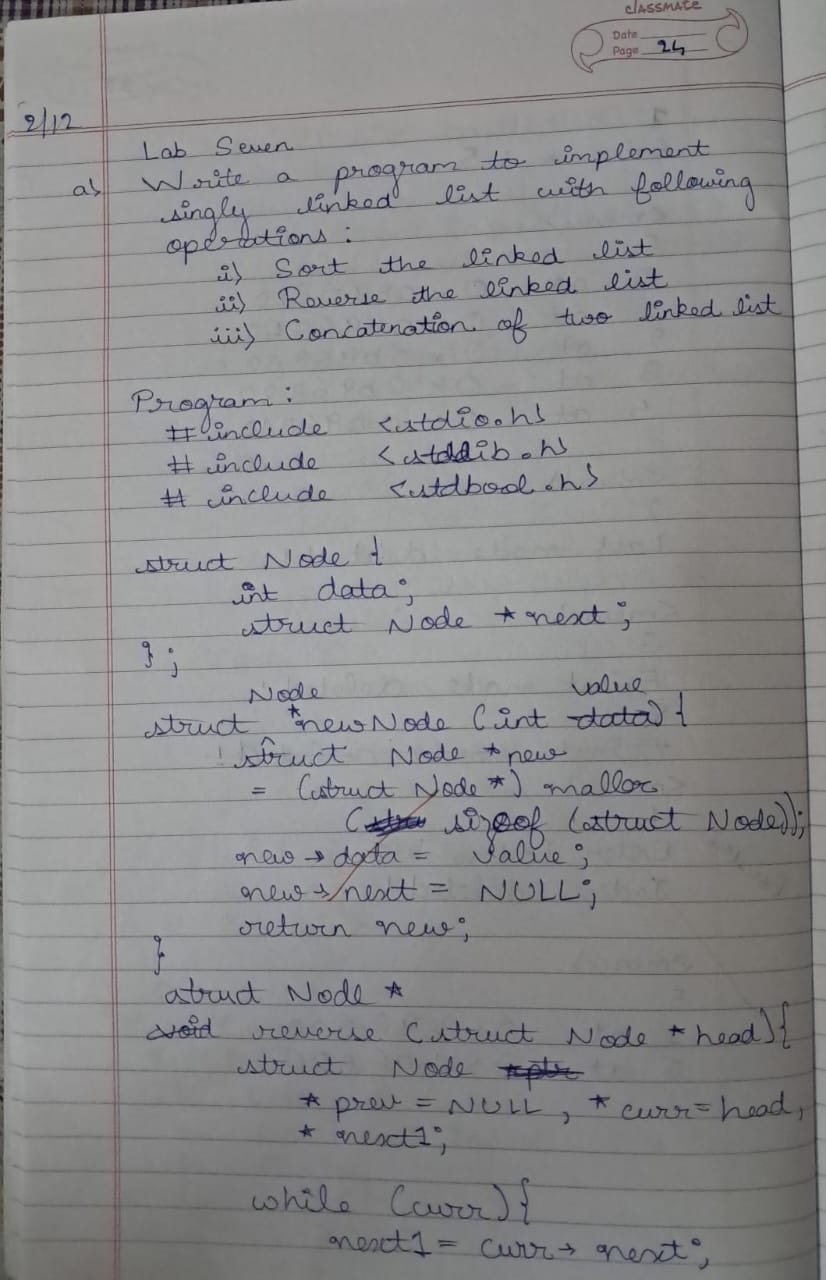 classmate
Date
Page 24
2/12
Lab Seven
a) Write a program to implement
singly linked list with following
operations :
i) Sort the linked list
ii) Reverse the linked list
iii) Concatenation of two linked list
Program :
# include <stdio.h>
# include <stdlib.h>
# include <stdbool.h>
struct Node {
int data;
struct Node *next;
};
Node value
struct *newNode (int data) {
struct Node *new
= (struct Node *) malloc
( sizeof (struct Node));
new→data = value;
new→next = NULL;
return new;
}
struct Node *
void reverse (struct Node *head){
struct Node *ptr
* prev = NULL, * curr = head,
* next1;
while (curr){
next1 = curr→ next;